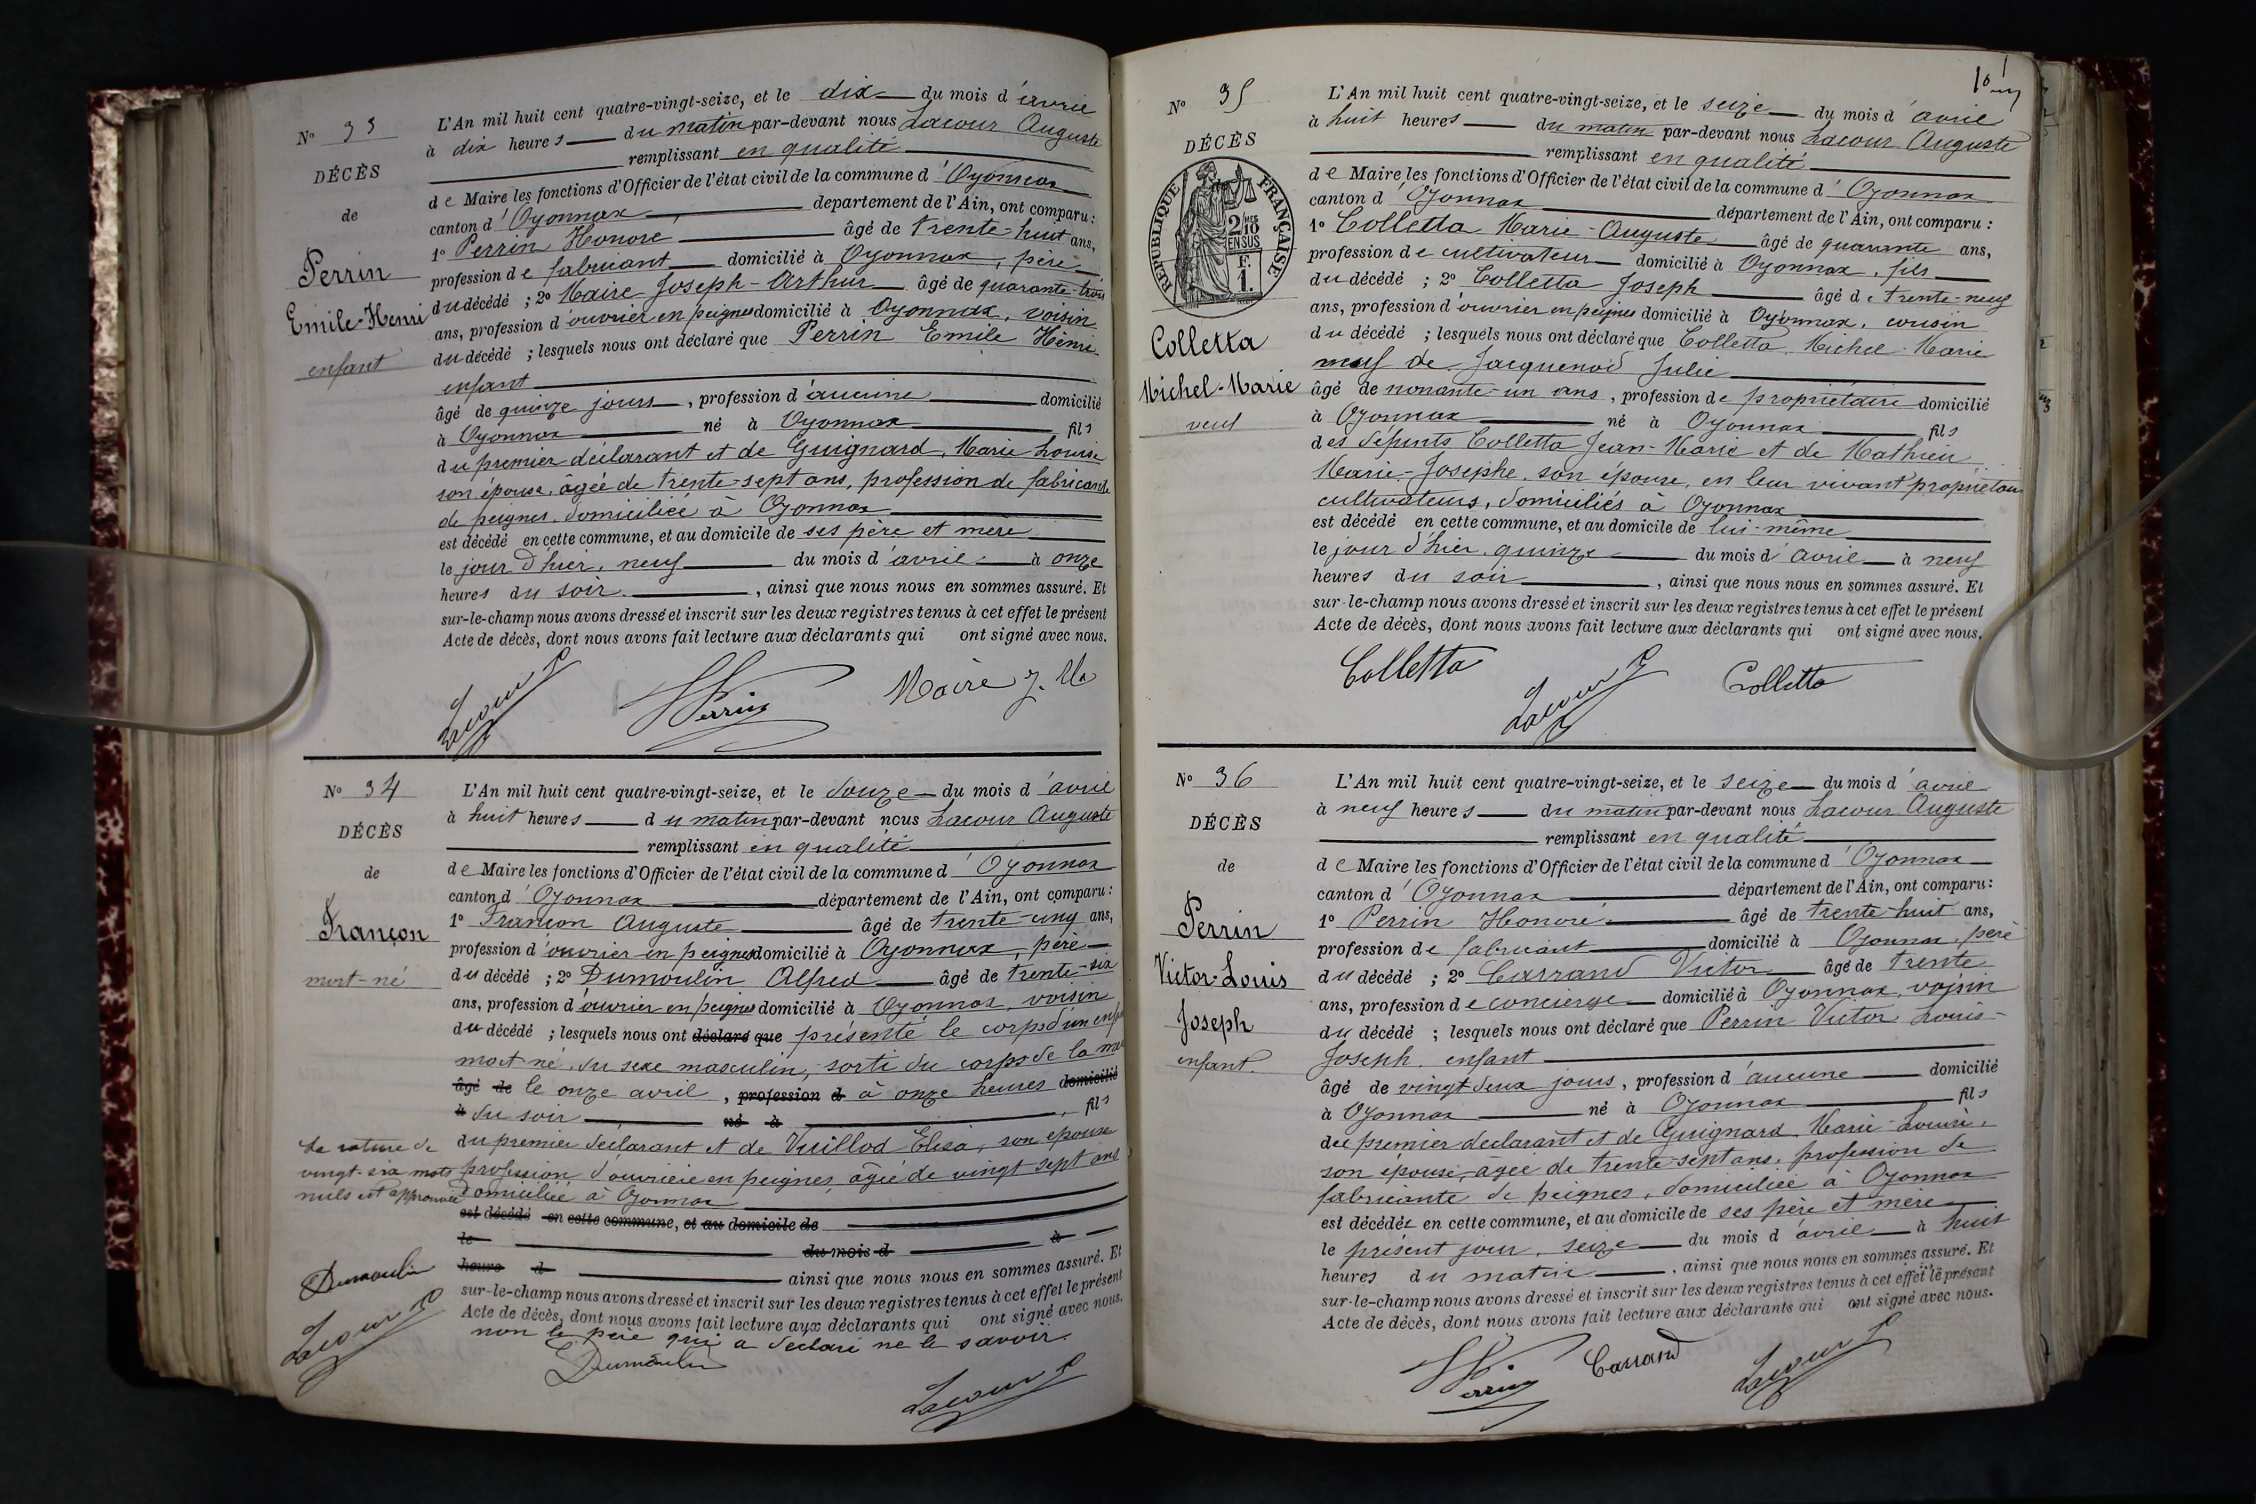 N° 33
DÉCÈS
de
Perrin
Emile-Henri
enfant
L'An mil huit cent quatre-vingt-seize, et le dix du mois d'avril
à dix heures du matin par-devant nous Lacour Auguste
remplissant en qualité
de Maire les fonctions d'Officier de l'état civil de la commune d'Oyonnax
canton d'Oyonnax département de l'Ain, ont comparu :
1° Perrin Honoré âgé de trente-huit ans,
profession de fabricant domicilié à Oyonnax, père
du décédé ; 2° Maire Joseph-Arthur âgé de quarante-trois
ans, profession d'ouvrier en peignes domicilié à Oyonnax, voisin
du décédé ; lesquels nous ont déclaré que Perrin Emile Henri
enfant
âgé de quinze jours, profession d'aucune domicilié
à Oyonnax né à Oyonnax fils
du premier déclarant et de Guignard, Marie Louise
son épouse, âgée de trente-sept ans, profession de fabricante
de peignes, domiciliée à Oyonnax
est décédé en cette commune, et au domicile de ses père et mère
le jour d'hier, neuf du mois d'avril à onze
heures du soir, ainsi que nous nous en sommes assuré. Et
sur-le-champ nous avons dressé et inscrit sur les deux registres tenus à cet effet le présent
Acte de décès, dont nous avons fait lecture aux déclarants qui ont signé avec nous.
Lacour Perrin Maire J.
N° 34
DÉCÈS
de
Françon
mort-né
L'An mil huit cent quatre-vingt-seize, et le douze du mois d'avril
à huit heures du matin par-devant nous Lacour Auguste
remplissant en qualité
de Maire les fonctions d'Officier de l'état civil de la commune d'Oyonnax
canton d'Oyonnax département de l'Ain, ont comparu :
1° Françon Auguste âgé de trente-cinq ans,
profession d'ouvrier en peignes domicilié à Oyonnax, père
du décédé ; 2° Dumoulin Alfred âgé de trente-six
ans, profession d'ouvrier en peignes domicilié à Oyonnax, voisin
du décédé ; lesquels nous ont déclaré que présenté le corps d'un enf
mort-né, du sexe masculin, sorti du corps de la
âgé de le onze avril, profession d à onze heures domicilié
à du soir né à fils
du premier déclarant et de Vuillod Elisa, son épouse
profession d'ouvrière en peignes, âgée de vingt sept ans
domiciliée à Oyonnax
La rature de
vingt-six mots
nuls est approuvée
est décédé en cette commune, et au domicile de
le du mois d à
heure d ainsi que nous nous en sommes assuré. Et
sur-le-champ nous avons dressé et inscrit sur les deux registres tenus à cet effet le présent
Acte de décès, dont nous avons fait lecture aux déclarants qui ont signé avec nous.
non le père qui a déclaré ne le savoir.
Dumoulin
Lacour
Dumoulin
Lacour
N° 35
DÉCÈS
RÉPUBLIQUE FRANÇAISE
2/10 EN SUS
F. 1.
Colletta
Michel-Marie
veuf
L'An mil huit cent quatre-vingt-seize, et le seize du mois d'avril
à huit heures du matin par-devant nous Lacour Auguste
remplissant en qualité
de Maire les fonctions d'Officier de l'état civil de la commune d'Oyonnax
canton d'Oyonnax département de l'Ain, ont comparu :
1° Colletta Marie-Auguste âgé de quarante ans,
profession de cultivateur domicilié à Oyonnax, fils
du décédé ; 2° Colletta Joseph âgé de trente-neuf
ans, profession d'ouvrier en peignes domicilié à Oyonnax, cousin
du décédé ; lesquels nous ont déclaré que Colletta Michel-Marie
veuf de Jacquenod Julie
âgé de nonante-un ans, profession de propriétaire domicilié
à Oyonnax né à Oyonnax fils
des défunts Colletta Jean-Marie et de Mathieu
Marie-Josephe, son épouse, en leur vivant propriétaires
cultivateurs, domiciliés à Oyonnax
est décédé en cette commune, et au domicile de lui-même
le jour d'hier, quinze du mois d'avril à neuf
heures du soir, ainsi que nous nous en sommes assuré. Et
sur-le-champ nous avons dressé et inscrit sur les deux registres tenus à cet effet le présent
Acte de décès, dont nous avons fait lecture aux déclarants qui ont signé avec nous.
Colletta Lacour Colletta
N° 36
DÉCÈS
de
Perrin
Victor-Louis
Joseph
enfant.
L'An mil huit cent quatre-vingt-seize, et le seize du mois d'avril
à neuf heures du matin par-devant nous Lacour Auguste
remplissant en qualité
de Maire les fonctions d'Officier de l'état civil de la commune d'Oyonnax
canton d'Oyonnax département de l'Ain, ont comparu :
1° Perrin Honoré âgé de trente-huit ans,
profession de fabricant domicilié à Oyonnax, père
du décédé ; 2° Carrand Victor âgé de trente
ans, profession de concierge domicilié à Oyonnax, voisin
du décédé ; lesquels nous ont déclaré que Perrin Victor Louis-
Joseph, enfant
âgé de vingt deux jours, profession d'aucune domicilié
à Oyonnax né à Oyonnax fils
du premier déclarant et de Guignard, Marie-Louise,
son épouse, âgée de trente-sept ans, profession de
fabricante de peignes, domiciliée à Oyonnax
est décédé en cette commune, et au domicile de ses père et mère
le présent jour, seize du mois d'avril à huit
heures du matin, ainsi que nous nous en sommes assuré. Et
sur-le-champ nous avons dressé et inscrit sur les deux registres tenus à cet effet le présent
Acte de décès, dont nous avons fait lecture aux déclarants qui ont signé avec nous.
Perrin Carrand Lacour